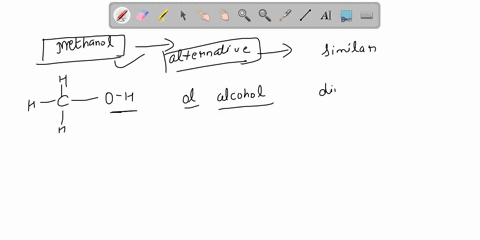 methanol → alternative → similar
H
H-C-O-H ol alcohol di
H